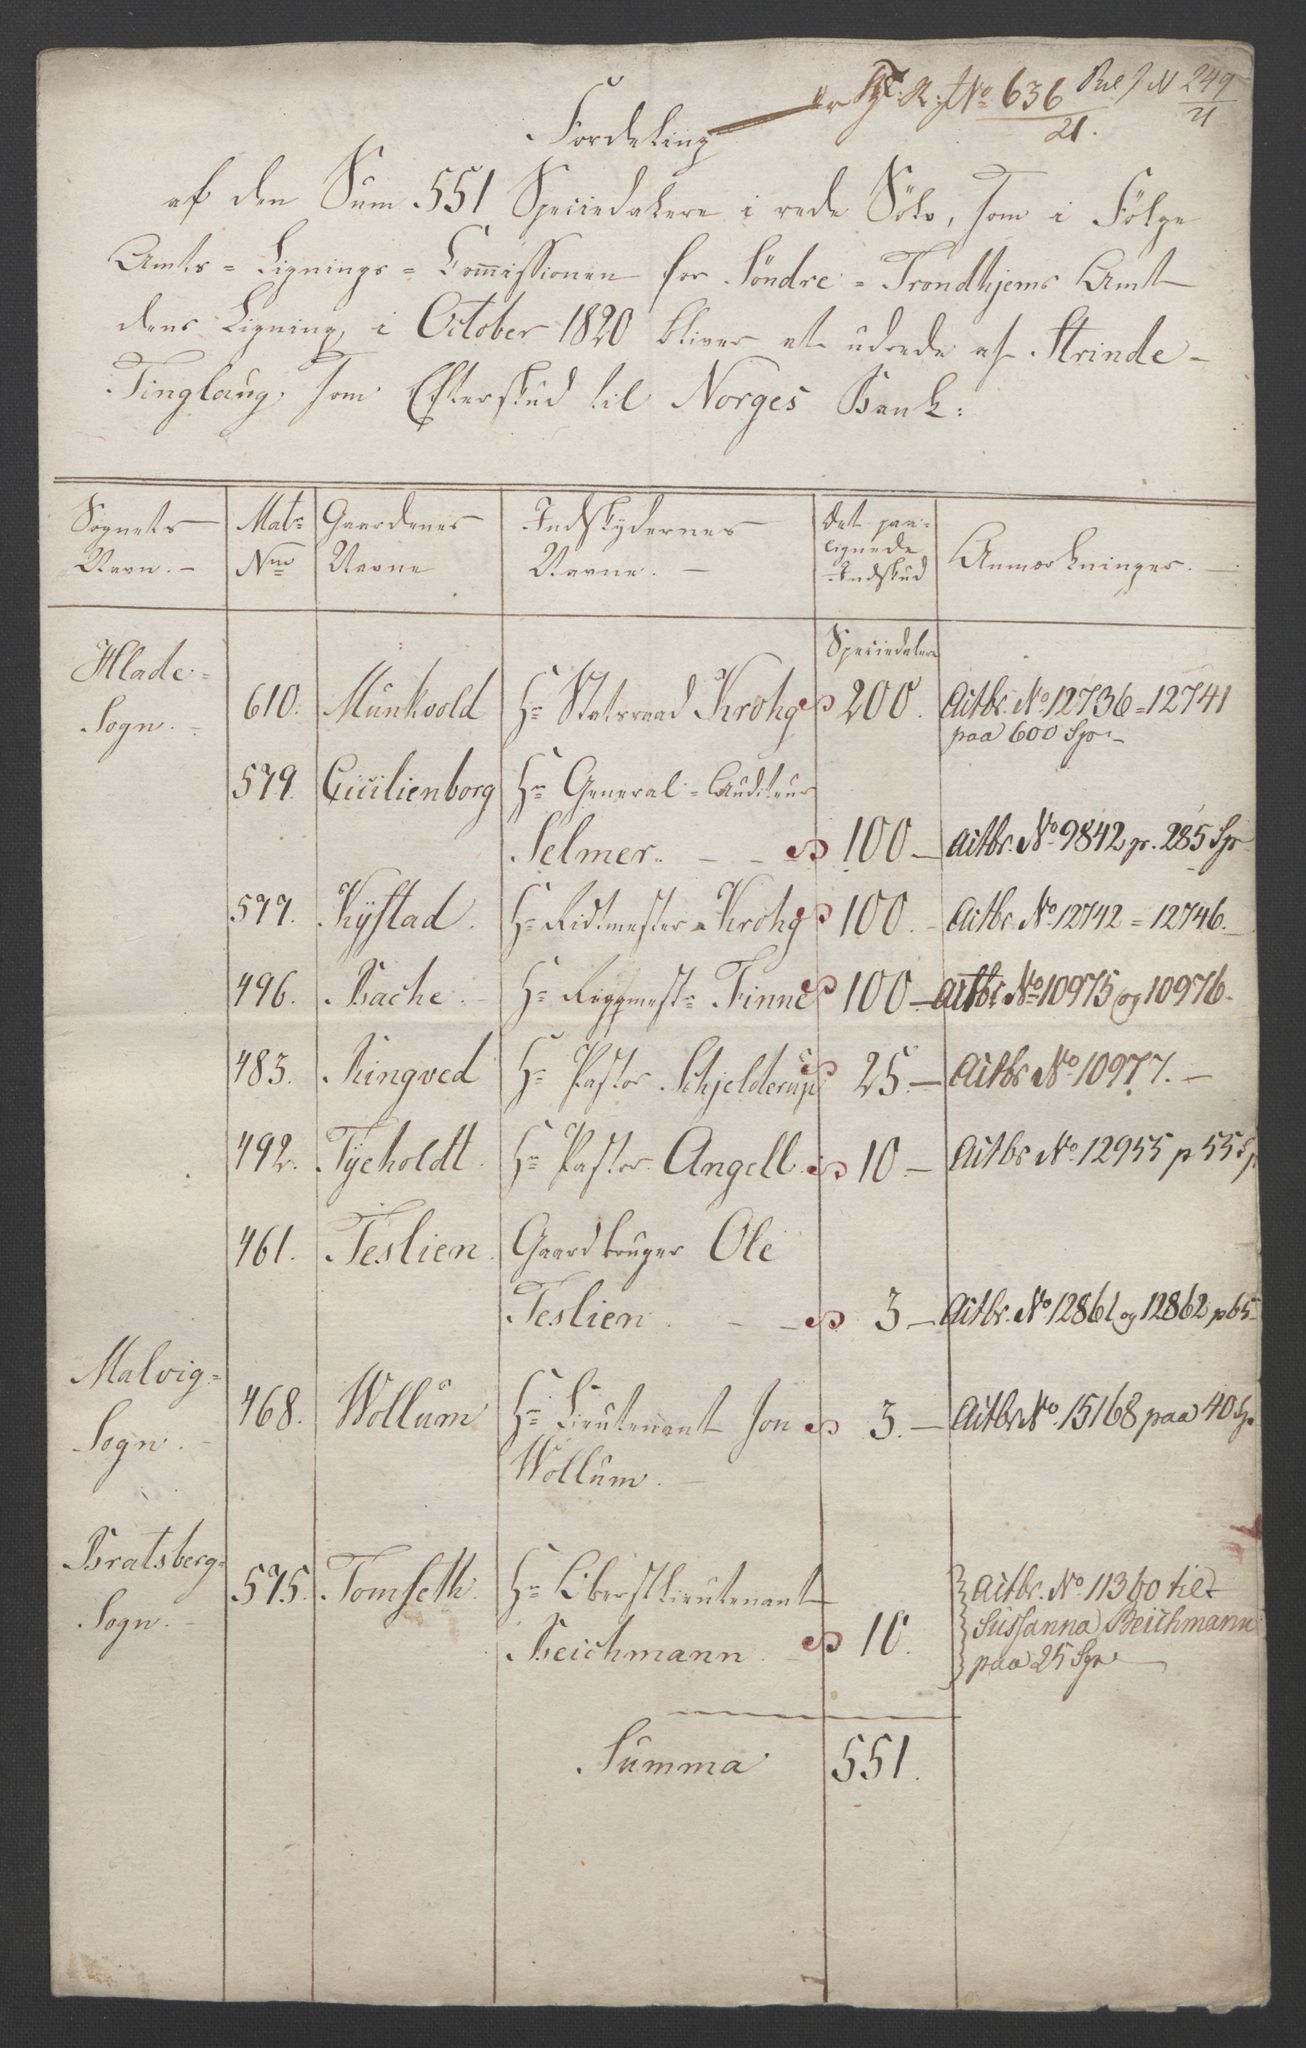 No 636 Bil J N 249
21. 21
Fordeling
af den Sum 551 Speciedalere i rede Sölv, som i Fölge
Amts=Lignings=Commissionen for Söndre=Trondhjems Amt
dens Ligning, i October 1820 bliver at udrede af Strinde-
Tinglaug, som Efterskud til Norges Bank:
Sognets Navn. - | Matr Nro | Gaardenes Navne | Indskydernes Navne. - | Det paa-lignede Indskud | Anmærkninger. -
Speciedaler
Hlade- 610. Munkvold Hr Statsraad Krohg 200. Actbr. No 12736=12741
Sogn. - paa 600 Spr -
579. Cicilienborg Hr General-Auditeur
Selmer. - - 100 - Actbr. No 9842 p. 285 Spr
577. Kystad. Hr Ridtmester Krohg 100. - Actbr No 12742=12746. -
496. Bache. - Hr Reggmestr Finne 100 - Actbr No 10975 og 10976.
483. Ringved Hr Pastor Schjelderup 25. - Actbr No 10977. -
492. Tycholdt. Hr Pastor Angell. 10 - Actbr No 12955 p 55 Sp
461. Teslien. Gaardbruger Ole
Teslien. - - 3 - Actbr. No 12861 og 12862 p 65
Malvig= 468. Wollum Hr Lieutenant Jon 3. - Actbr No. 15168 paa 40 Sp
Sogn. - Wollum. -
Bratsberg= 575. Tomseth. Hr Oberstlieutenant Actbr. No 11360 til
Sogn. - Beichmann. - 10. Sussanna Beichmann
paa 25 Spr
Summa 551.